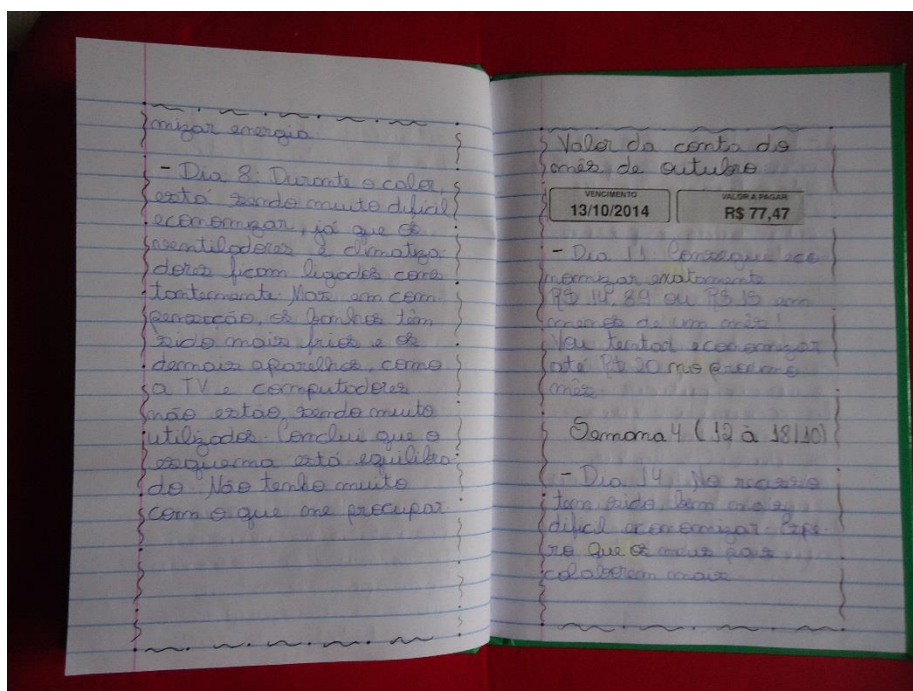 mizar energia.
- Dia 8: Durante o calor,
está sendo muito difícil
economizar, já que os
ventiladores e climatiza-
dores ficam ligados cons-
tantemente. Mas em com-
pensação, os banhos têm
sido mais frios e os
demais aparelhos, como
a TV e computadores
não estão, sendo muito
utilizados. Conclui que o
esquema está equilibra-
do. Não tenho muito
com o que me procupar.
Valor da conta do
mês de outubro
VENCIMENTO
13/10/2014
VALOR A PAGAR
R$ 77,47
- Dia 11: Consegui eco-
nomizar exatamente
R$ 14,89 ou R$ 15 em
menos de um mês!
Vou tentar economizar
até R$ 20 no próximo
mês.
Semana 4 (12 à 18/10)
- Dia 14: No
tem sido bem mais
difícil economizar. Espe-
ro que os meus pais
colaborem mais